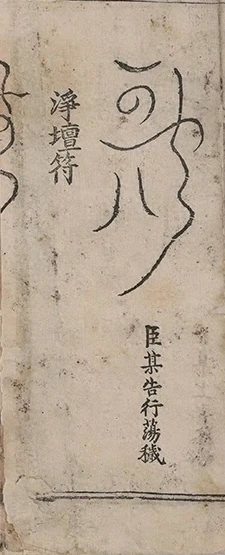 臣某告行蕩穢
淨壇符